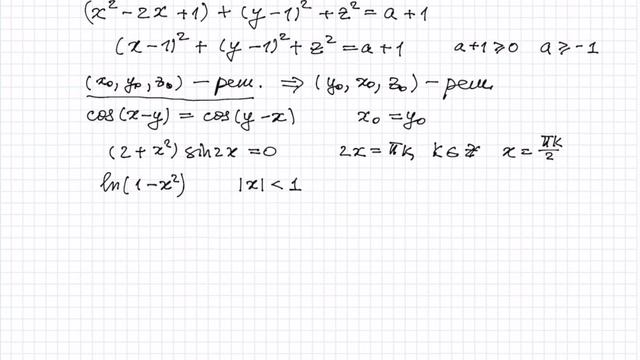 (x² - 2x + 1) + (y - 1)² + z² = a + 1
(x - 1)² + (y - 1)² + z² = a + 1 a + 1 ⩾ 0 a ⩾ -1
(x₀, y₀, z₀) – реш. ⇒ (y₀, x₀, z₀) – реш.
cos(x - y) = cos(y - x) x₀ = y₀
(2 + x²) sin 2x = 0 2x = πk, k ∈ ℤ x = πk/2
ln(1 - x²) |x| < 1